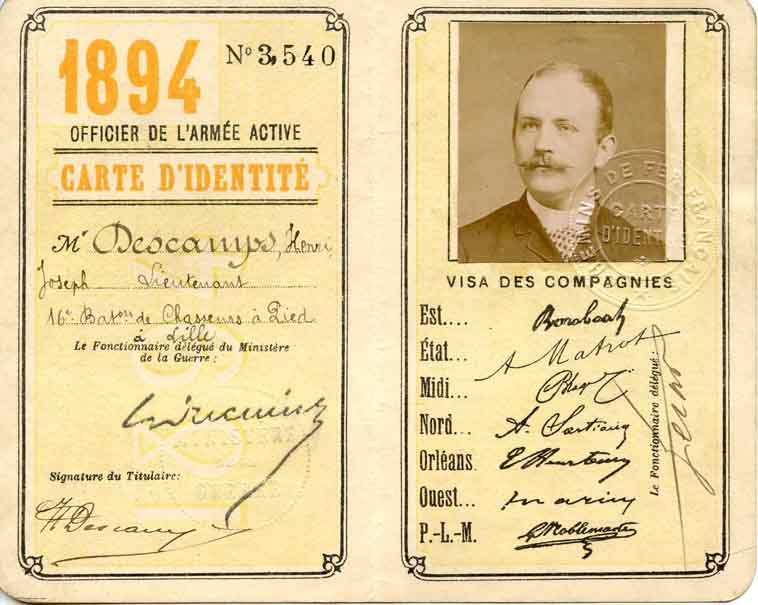 1894
Nº 3,540
OFFICIER DE L'ARMÉE ACTIVE
CARTE D'IDENTITÉ
Mr Descamps, Henri,
Joseph Lieutenant
16e Batons de Chasseurs à Pied
à Lille
Le Fonctionnaire délégué du Ministère
de la Guerre :
Signature du Titulaire:
H Descamps
CHEMINS DE FER FRANÇAIS
CARTE
D'IDENTITÉ
VISA DES COMPAGNIES
Est....
État....
A Matrot
Midi...
Nord...
Orléans
Ouest...
P.-L.-M.
G Noblemaire
Le Fonctionnaire délégué :